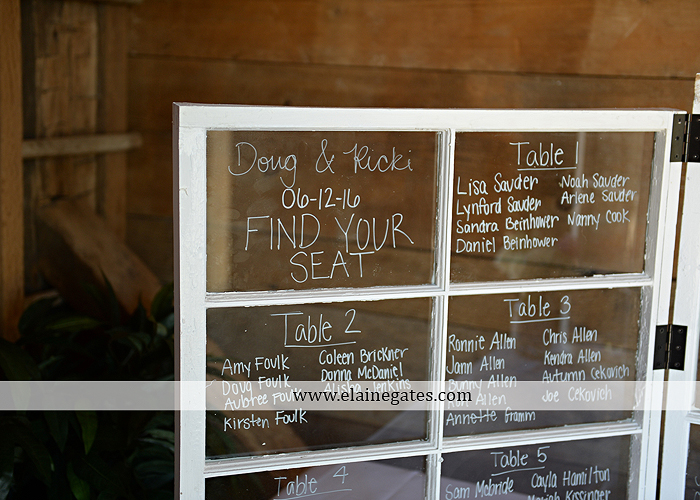 Doug & Ricki
06-12-16
FIND YOUR
SEAT
Table 1
Lisa Sauder
Lynford Sauder
Sandra Beinhower
Daniel Beinhower
Noah Sauder
Arlene Sauder
Nanny Cook
Table 2
Amy Foulk
Doug Foulk
Aubree Foulk
Kirsten Foulk
Coleen Brickner
Donna McDaniel
Alisha Jenkins
Table 3
Ronnie Allen
Jann Allen
Bunny Allen
Allen
Annette Gramm
Chris Allen
Kendra Allen
Autumn Cekovich
Joe Cekovich
www.elainegates.com
Table 4
Table 5
Sam McBride
Cayla Hamilton
Kissinger